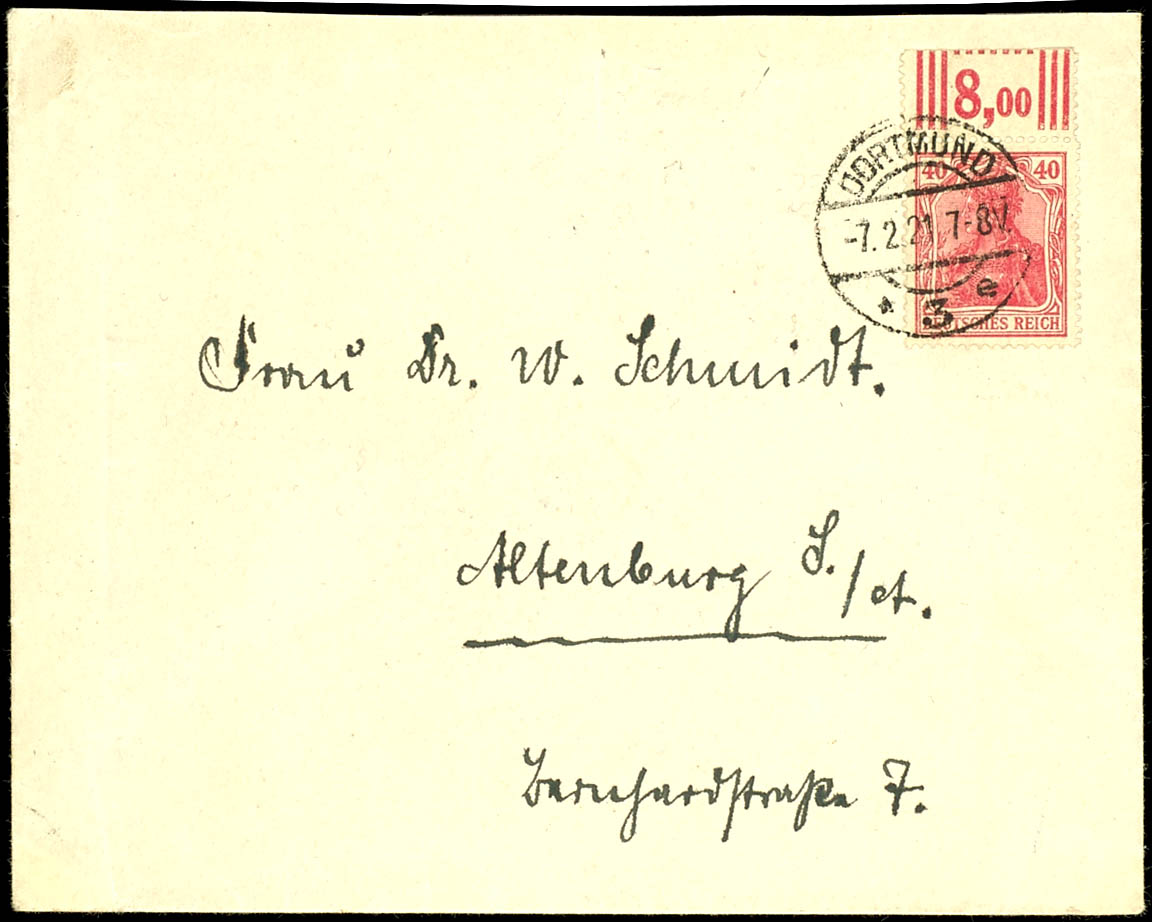 8,00
DORTMUND
40 40
-7.2.21. 7-8V.
* 3 e
DEUTSCHES REICH
Frau Dr. W. Schmidt.
Altenburg S./A.
Bernhardstraße 7.